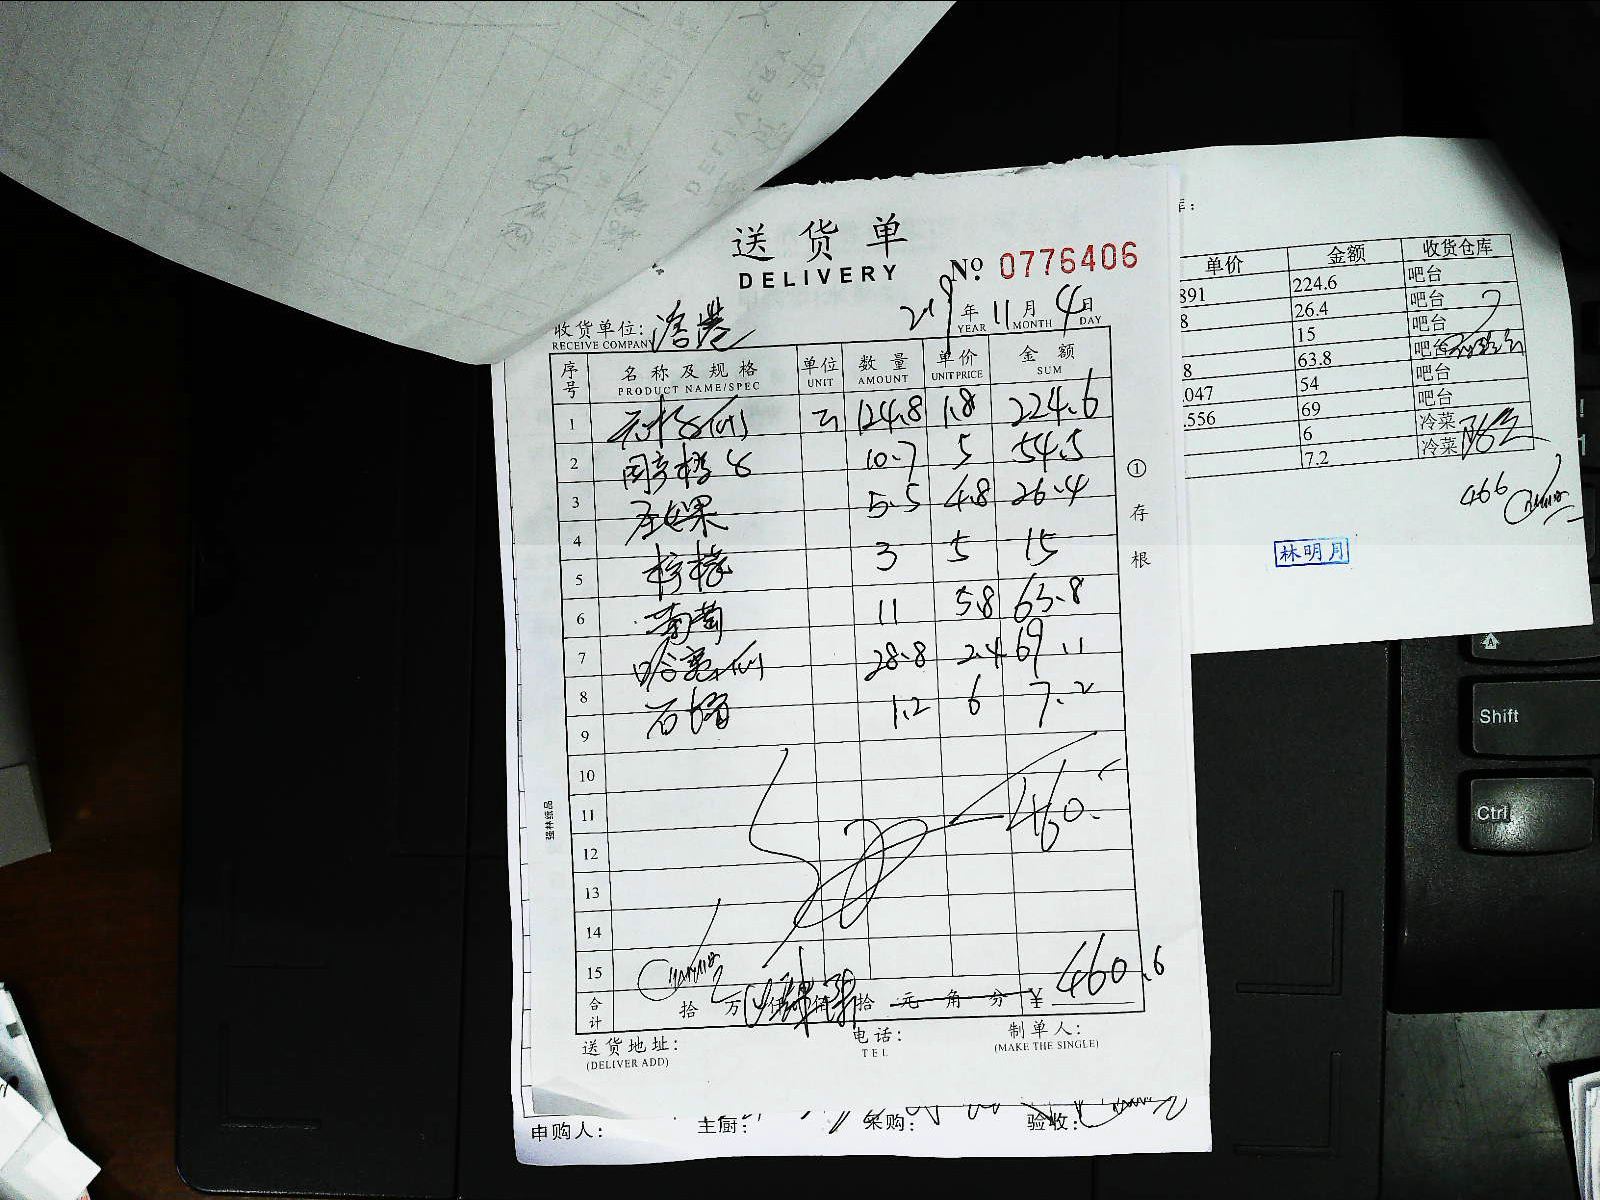 送货单
DELIVERY
No 0776406
年 YEAR 11 月 MONTH 4 日 DAY
收货单位:
RECEIVE COMPANY
序号 名称及规格 单位 数量 单价 金额
PRODUCT NAME/SPEC UNIT AMOUNT UNIT PRICE SUM
1 124.8 1.8 224.6
2 10.7 5 54.5
3 圣女果 5.5 4.8 26.4
4 柠檬 3 5 15
5
6 葡萄 11 5.8 63.8
7 哈密瓜 28.8 2.4 69.1
8 石榴 1.2 6 7.2
9
10
11 460.
12
13
14
15
合计 拾 万 仟 佰 拾 元 角 分 ¥ 460.6
送货地址:
(DELIVER ADD)
电话:
TEL
制单人:
(MAKE THE SINGLE)
① 存根
申购人: 主厨: 采购: 验收:
库:
单价 金额 收货仓库
891 224.6 吧台
8 26.4 吧台
15 吧台
8 63.8 吧台
.047 54 吧台
.556 69 吧台
6 冷菜
7.2 冷菜
466
林明月
Shift
Ctrl